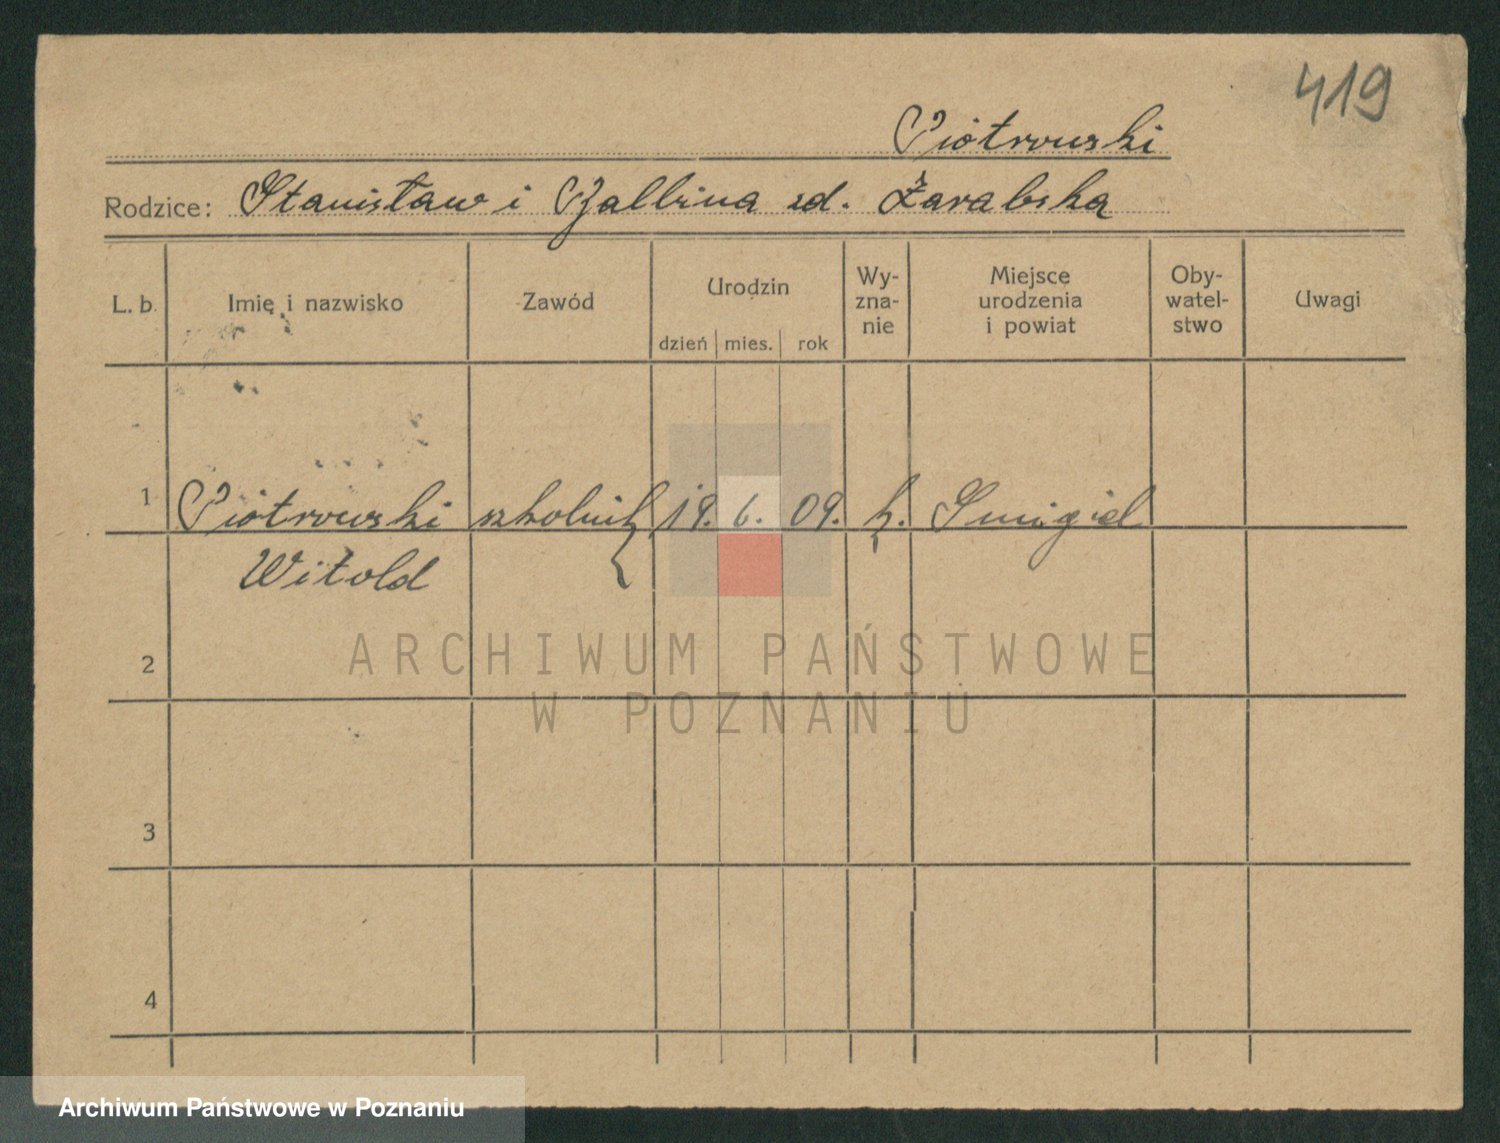 419
Piotrowski
Rodzice: Stanisław i Balbina zd. Żarabska
L. b. Imię i nazwisko Zawód Urodzin dzień mies. rok Wy-zna-nie Miejsce urodzenia i powiat Oby-watel-stwo Uwagi
1 Piotrowski szkolnik 19. 6. 09. k. Smigiel
Witold
2
3
4
ARCHIWUM PAŃSTWOWE
W POZNANIU
Archiwum Państwowe w Poznaniu